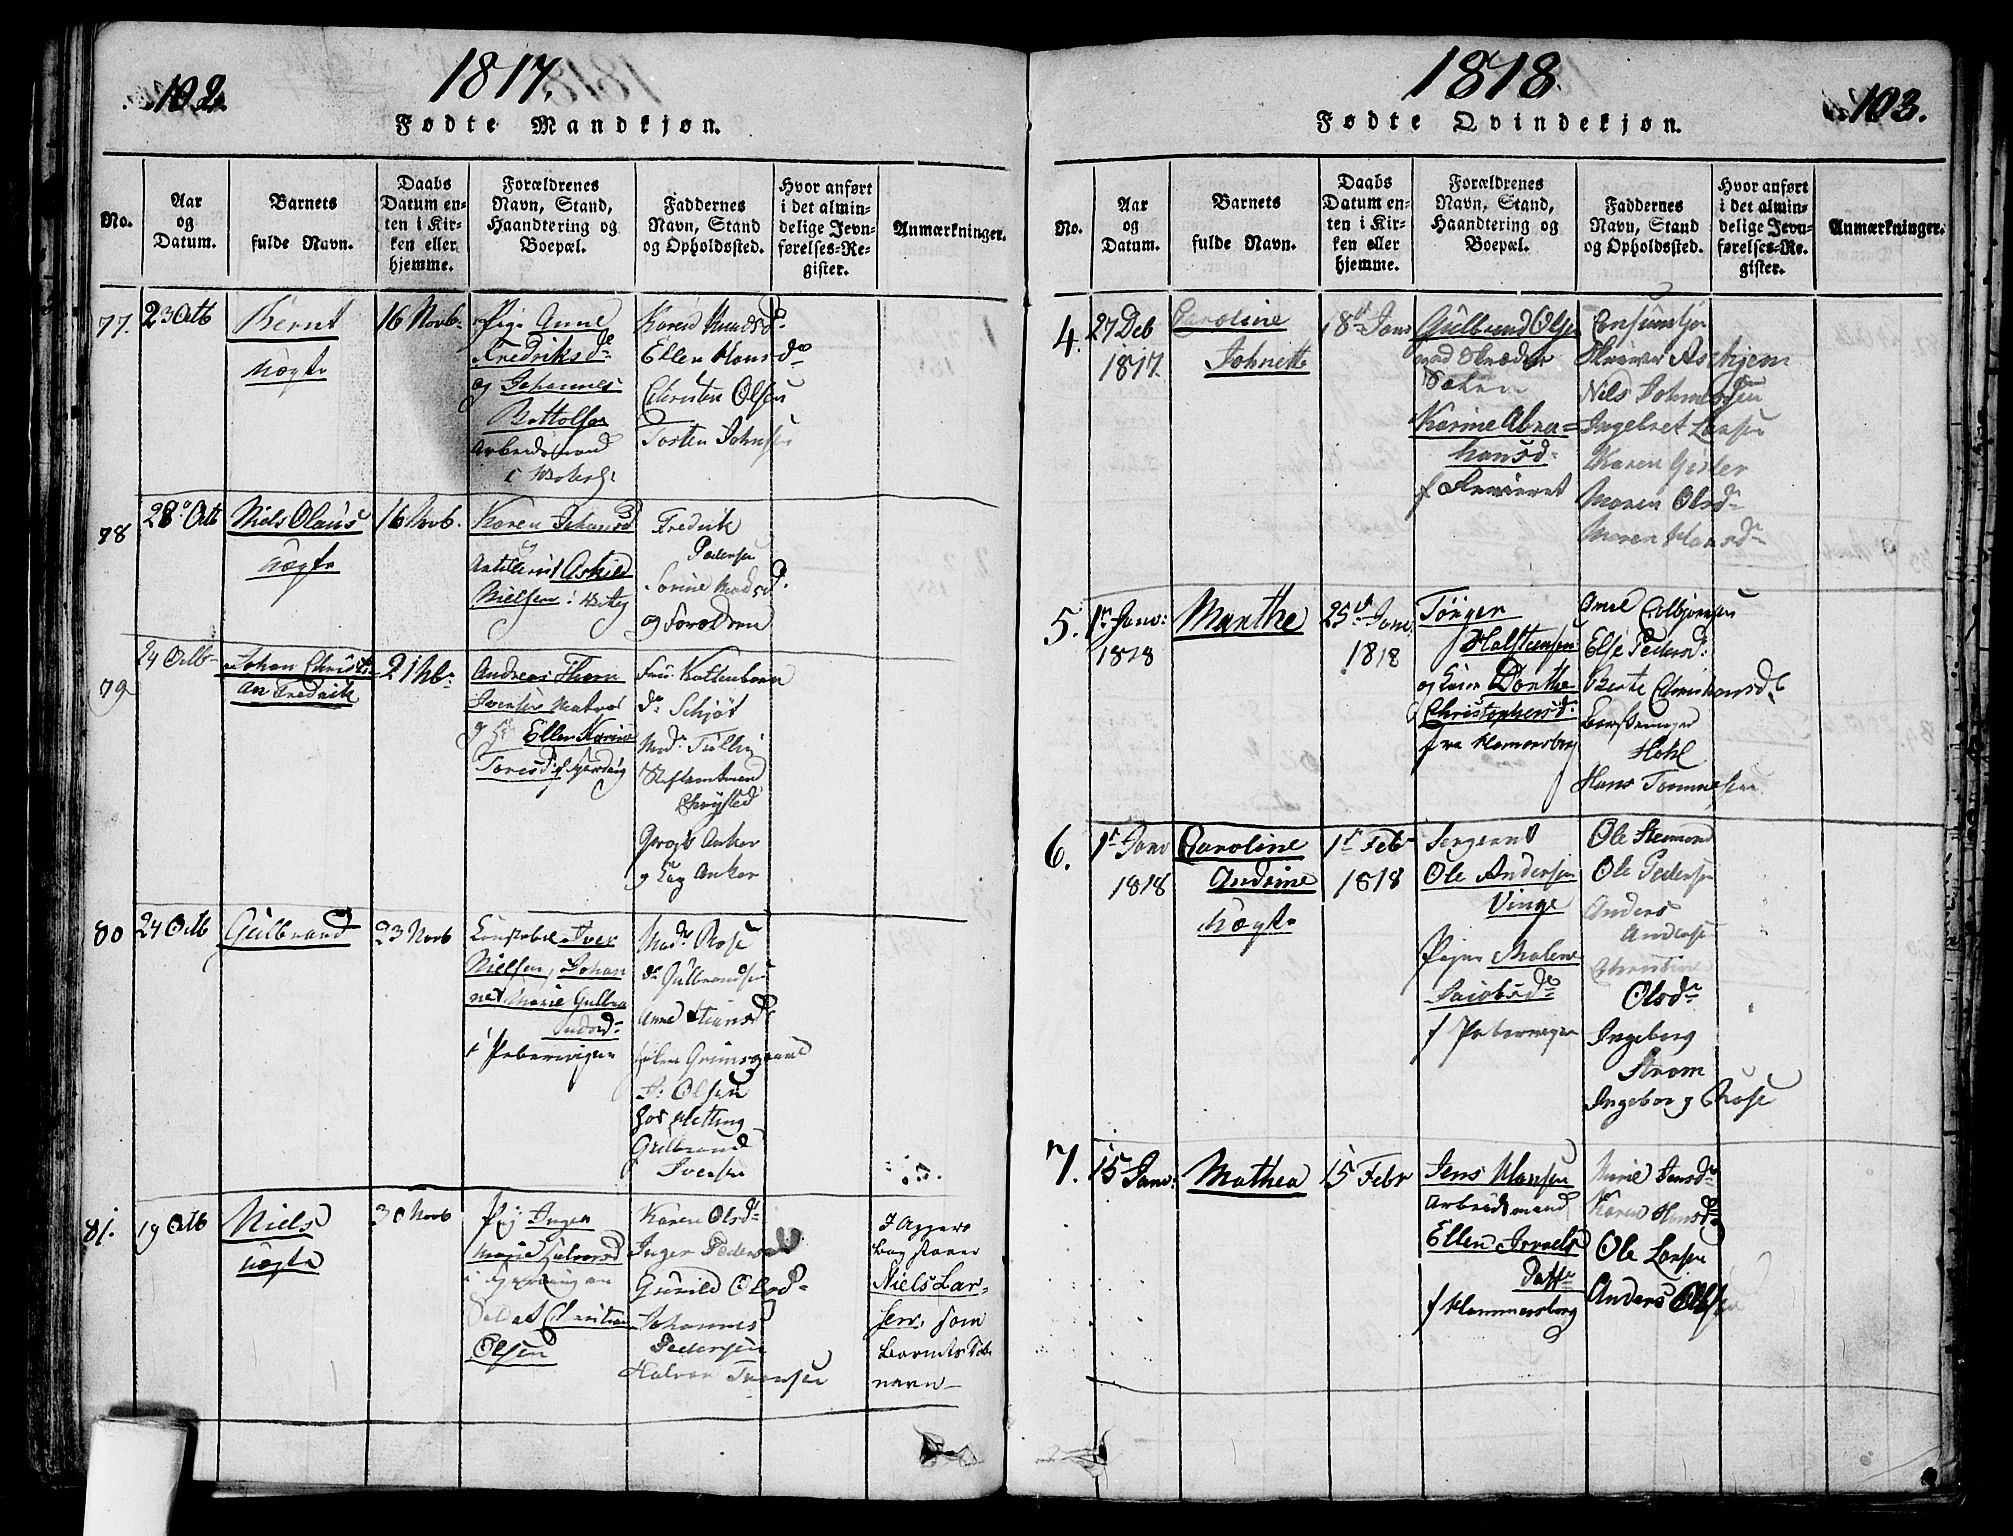 102.
1817.
Fødte Mandkjøn.
No.
Aar
og
Datum.
Barnets
fulde Navn.
Daabs
Datum en-
ten i Kir-
ken eller
hjemme.
Forældrenes
Navn, Stand,
Haandtering og
Boepæl.
Faddernes
Navn, Stand
og Opholdssted.
Hvor anført
i det almin-
delige Jevn-
førelses-Re-
gister.
Anmærkninger.
77.
23 Octb
Bernt
uægte
16 Novb.
Pige Anne
Fredriksd.
og Johannes
Bottolfsen
Arbeidsmand
Karen Knudsd.
Ellen Hansd.
Christen Olsen
Torsten Johnsen
78
28 Octb
Niels Olaus
uægte
16 Novb.
Karen Johansd
Askild
Nielsen
Fredrik
Pedersen
Sorine Madsd.
og Forældrene
79
24 Octb
Johan Christi-
an Fredrik
21 Nb.
Andreas Thorn
Iversen Matros
og H. Ellen Karine
Toresd.
Fru Koltenborn
Schjøt
Mad. Tullin
Chrysted
Anker
og Anker
80
24 Octb
Gulbrand
23 Novb
Constabel Iver
Nielsen, Johan
ne Marie Gulbra
ndsd.
i Pebervigen
Mad. Rose
d. Gulbrandsen
Anne
Grimsgaard
Olsen
hos Metting
Gulbrand
Iversen
81.
19 Octb
Niels
uægte
30 Novb
Pig Inger
Marie Halvorsd
Soldat Christian
Olsen
Karen Olsd.
Inger Pedersd
Gunild Olsd.
Johannes
Pedersen
Halvor Svensen
I Aggers
Bog staaer
Niels Lar-
sen, som
Barnets Døbe
navn
103.
1818.
Fødte Qvindekjøn.
No.
Aar
og
Datum.
Barnets
fulde Navn.
Daabs
Datum en-
ten i Kir-
ken eller
hjemme.
Forældrenes
Navn, Stand,
Haandtering og
Boepæl.
Faddernes
Navn, Stand
og Opholdssted.
Hvor anført
i det almin-
delige Jevn-
førelses-Re-
gister.
Anmærkninger.
4.
27 Deb
1817.
Caroline
Johnette
18 Janv
Gulbrand Olsen
Karine Abra-
hamsd.
Skriver Askjem
Nils Johnsen
Ingebret Larsen
Karen Gisler
Maren Olsd.
Maren Hansd.
5.
1 Janv:
1818
Marthe
25 Janv.
1818
Törger
Halstensen
og Kone Dorthe
Christophersd.
fra Hamersborg
Anne Colbjørnsen
Else Pedersd:
Berte Christiansd.
Hans Tommesen
6.
1 Janv
1818
Caroline
Andrine
uægte
1 Febr
1818
Sergeant
Ole Andersen
Vinge
Pigen Malene
Jacobsd.
f Pebervigen
Ole Stemend
Ole Pedersen
Anders
Andersen
Christine
Olsd.
Ingeborg
Strøm
Ingeborg Rose
7.
15 Janv:
Mathea
15 Febr
Jens Hansen
Arbeidsmand
Ellen Israels
Datter
f Hammersborg
Marie Jensd.
Karen Hansd.
Ole Larsen
Anders Olsen